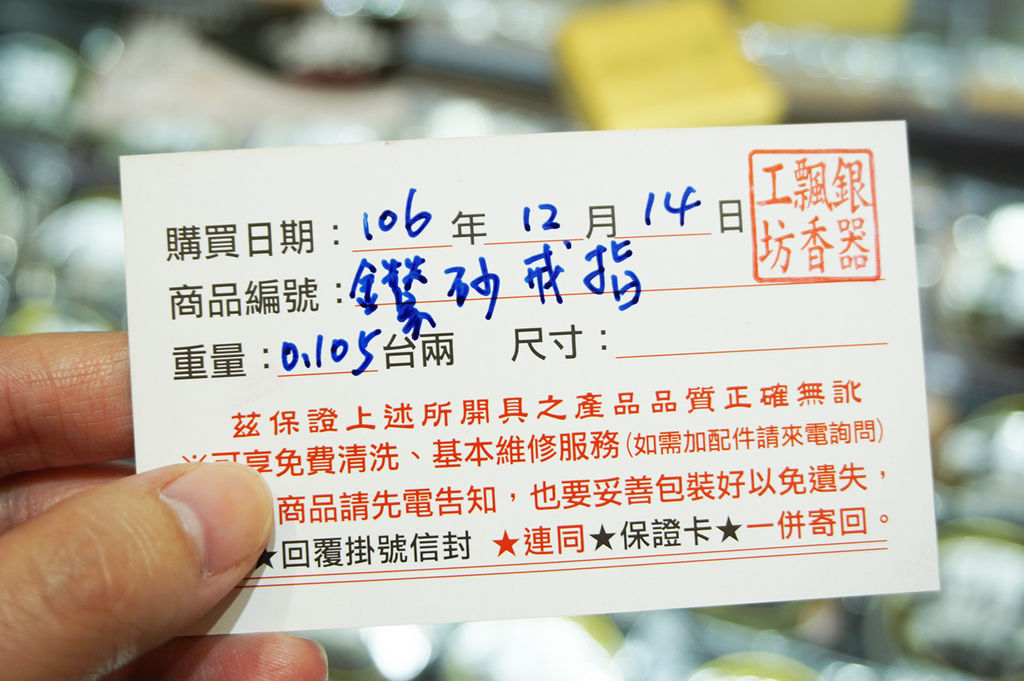 購買日期：106年12月14日
商品編號：鑽砂戒指
重量：0.105台兩 尺寸：
銀器飄香工坊
茲保證上述所開具之產品品質正確無訛
※可享免費清洗、基本維修服務(如需加配件請來電詢問)
商品請先電告知，也要妥善包裝好以免遺失，
★回覆掛號信封 ★連同★保證卡★一併寄回。